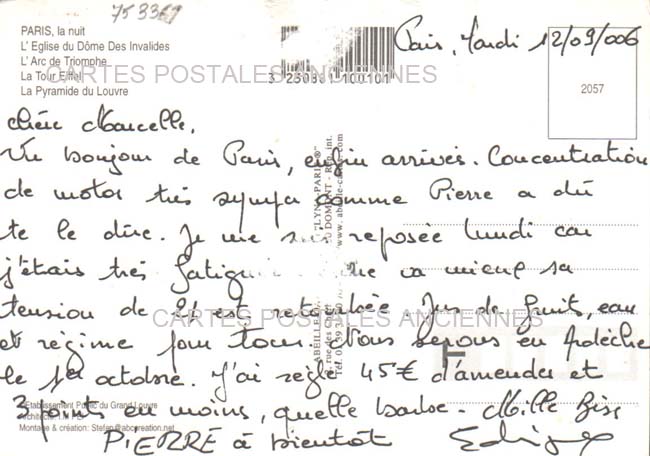 753369
PARIS, la nuit
L' Eglise du Dôme Des Invalides
L' Arc de Triomphe
La Tour Eiffel
La Pyramide du Louvre
CARTES POSTALES ANCIENNES
3 250881 100101
2057
Paris, Mardi 12/09/006
chère Marcelle,
Un bonjour de Paris, enfin arrivés. Concentration
de motos très sympa comme Pierre a dû
te le dire. Je me suis reposée lundi car
j'étais très fatiguée va mieux sa
tension de 21 est retombée Jus de fruit, eau
et régime pour tous. Nous serons en Ardèche
le 1er octobre. J'ai réglé 45€ d'amendes et
3 points en moins, quelle barbe. Mille Bises
PIERRE à bientôt
CARTES POSTALES ANCIENNES
© Etablissement Public du Grand Louvre
Montage & création: Stefan@abcreation.net